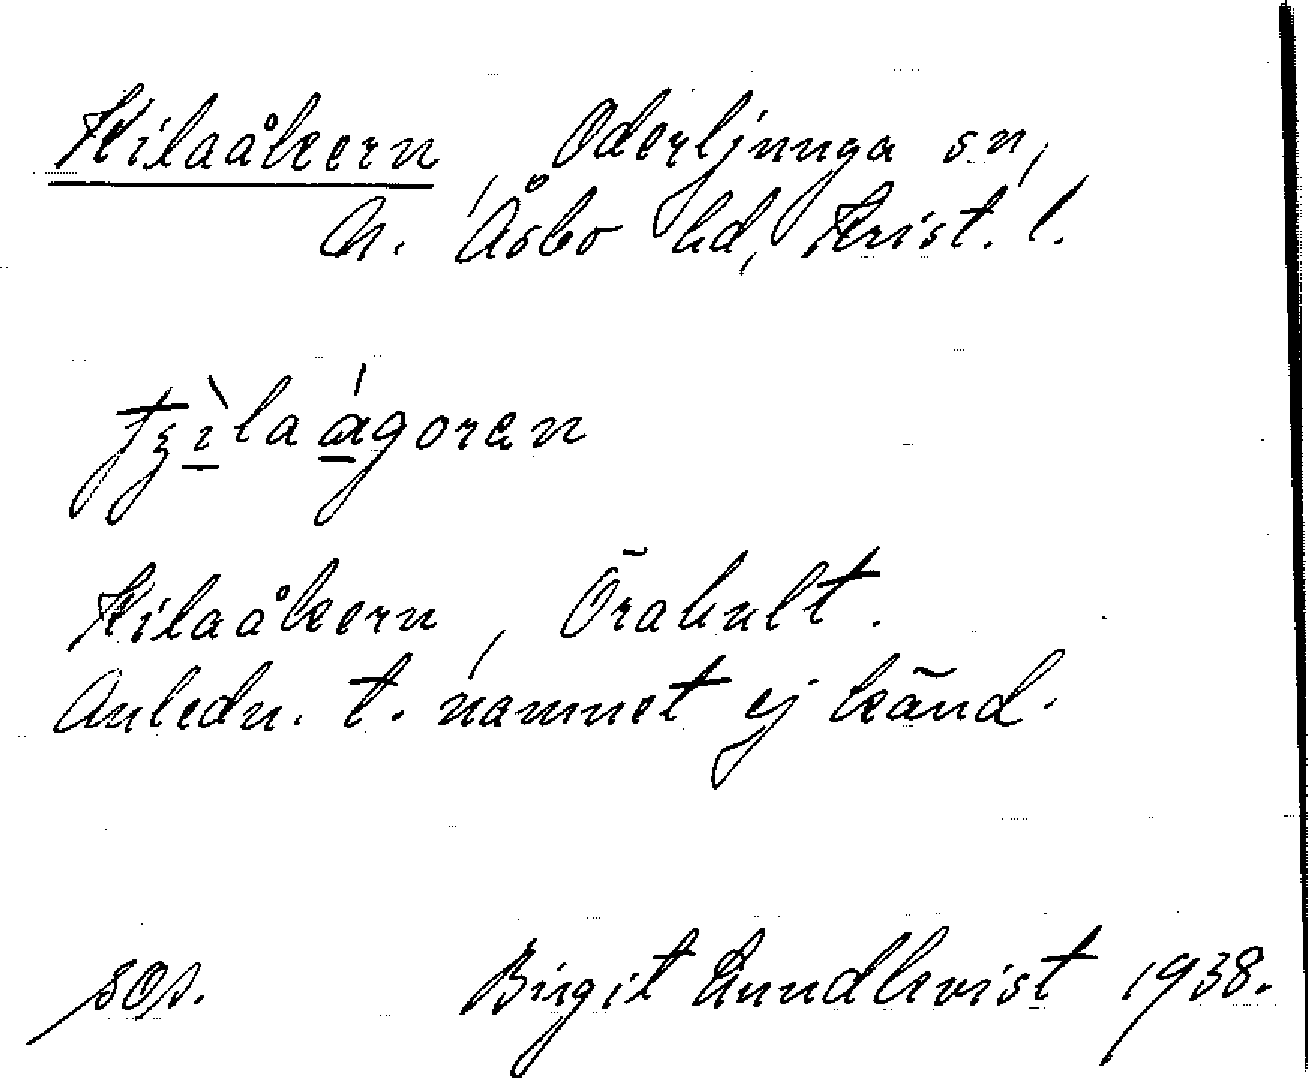 Kilaåkern, Oderljunga sn,
N. Åsbo hd, Krist. l.
Kilaåkern, Örahult.
Anledn. t. namnet ej känd.
sos. Birgit Lundkvist 1938.